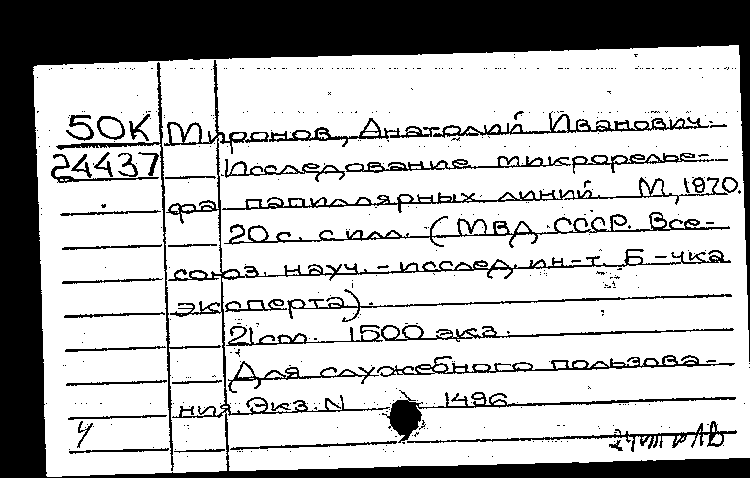 50К Миронов, Анатолий Иванович.
24437 Исследование микрорелье-
фа папиллярных линий. М., 1970.
20с. с илл. (МВД СССР. Все-
союз. науч.-исслед. ин-т. Б-чка
эксперта).
21см. 1500 экз.
Для служебного пользова-
ния. Экз. N 1496